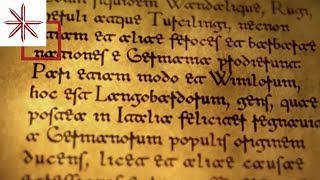 siquidem Wandalique, Rugi,
eruli atque Turcilingi, necnon
etiam et aliae feroces et barbarae
nationes e Germania prodierunt.
Pari etiam modo et Winilorum,
hoc est Langobardorum, gens, quae
postea in Italia feliciter regnavit
a Germanorum populis originem
ducens, licet et aliae causae